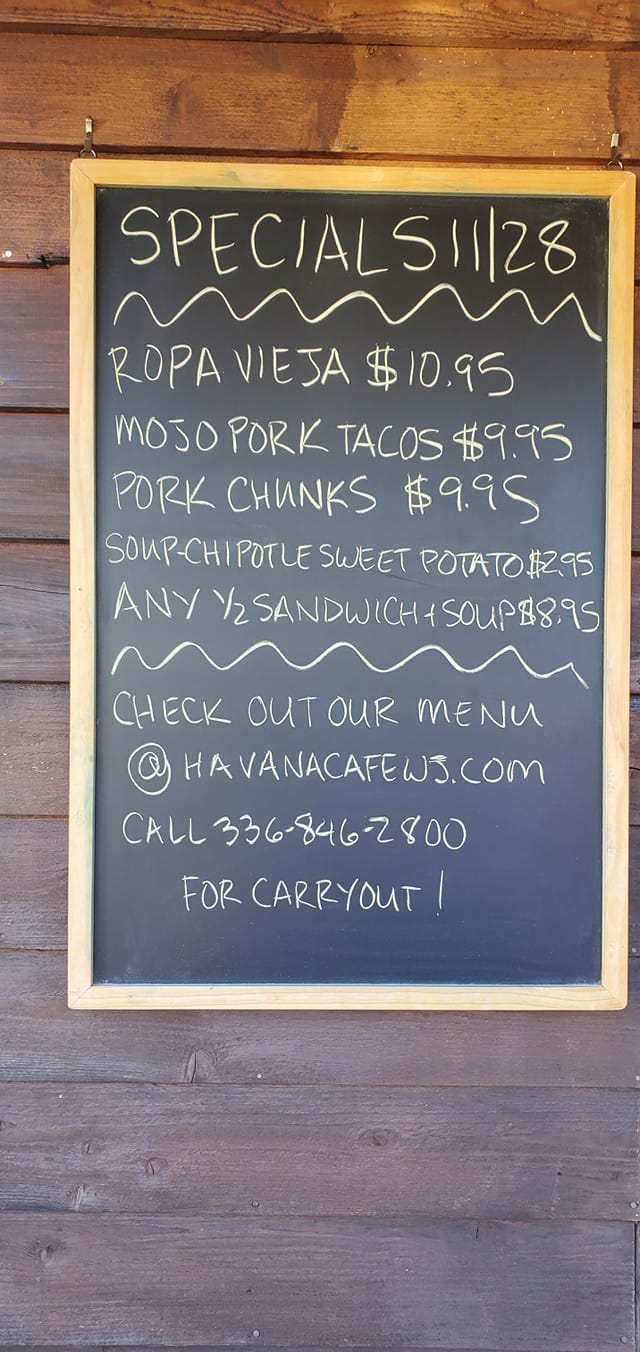 SPECIALS 11/28
ROPA VIEJA $10.95
MOJO PORK TACOS $9.95
PORK CHUNKS $9.95
SOUP-CHIPOTLE SWEET POTATO $2.95
ANY 1/2 SANDWICH + SOUP $8.95
CHECK OUT OUR MENU
@ HAVANACAFEWS.COM
CALL 336-846-2800
FOR CARRYOUT!